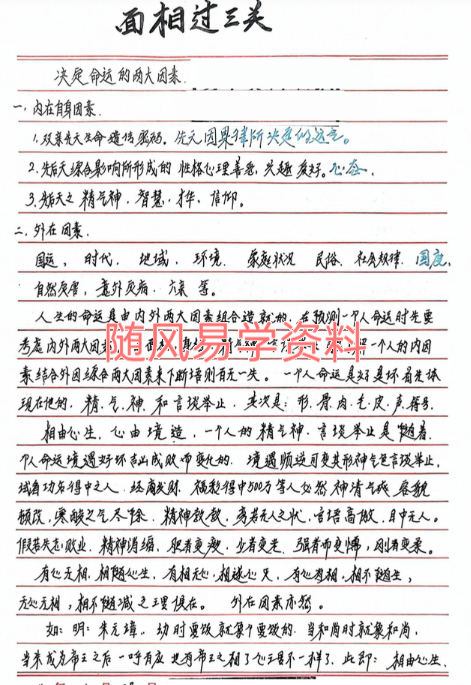 面相过三关
决定命运的两大因素.
一、内在自身因素.
1.双亲先天生命遗传密码。先元因果律所决定的运气。
2.先后天综合影响所形成的性格心理善恶,兴趣爱好。心态.
3.先后天之精气神,智慧,才华,信仰。
二.外在因素.
国运,时代,地域,环境.家庭状况 民俗.社会规律.国度,
自然灾害,意外灾病,六亲 等。
人生的命运是由内外两大因素组合造就的.在预测一个人命运时先要
考虑内外两大因
一个人的内因
素结合外因综合两大因素来下断语则百无一失。一个人命运是好是坏首先体
现在他的.精.气.神.和言谈举止.其次是:形.骨.肉.毛.皮.声.等.
相由心生,心由境造,一个人的精气神,言谈举止是随着
个人命运境遇好坏吉凶成败而变化的.境遇顺逆可变其形神气色言谈举止,
或有功名得中之人.经商发财.福彩得中500万等人必然神清气爽 容貌
顿改,寒酸之气尽除.精神饮饮,旁若无人之状,言语高傲,目中无人。
假若失志败业.精神消缩,肥者更瘦,少者更老.强者而更懦,刚者更柔。
有心无相,相随心生,有相无心.相遂心灭,有心有相.相不随生,
无心无相,相不随减之理俱在。 外在因素亦然.
如:明:朱元璋.幼时要饭就象个要饭的.当和尚时就象和尚,
当来成为帝王之后一呼百应 也有帝王之相了心态就不一样了.此即:相由心生.
随风易学资料